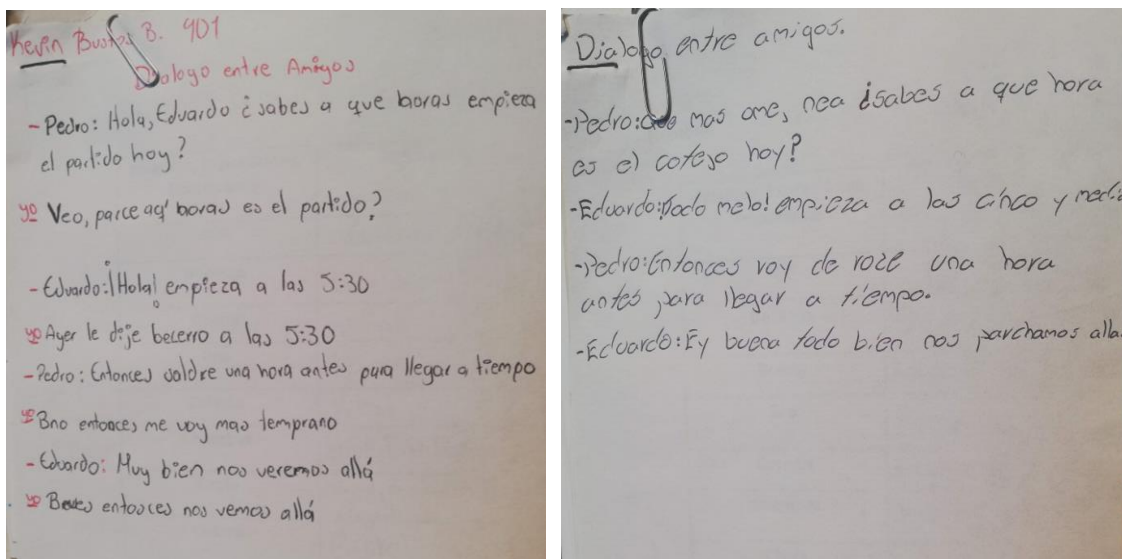 Kevin Bustos B. 901
Dialogo entre Amigos
- Pedro: Hola, Eduardo ¿sabes a que horas empieza
el partido hoy?
yo Veo, parce aq' horas es el partido?
- Eduardo: ¡Hola! empieza a las 5:30
yo Ayer le dije becerro a las 5:30
- Pedro: Entonces saldre una hora antes para llegar a tiempo
yo Bno entonces me voy mas temprano
- Eduardo: Muy bien nos veremos allá
yo entonces nos vemos allá
Dialogo entre amigos.
-Pedro: mas ome, nea ¿sabes a que hora
es el cotejo hoy?
-Eduardo: ¡todo melo! empieza a las cinco y media
-Pedro: Entonces voy de roze una hora
antes para llegar a tiempo.
-Eduardo: Ey buena todo bien nos parchamos alla.